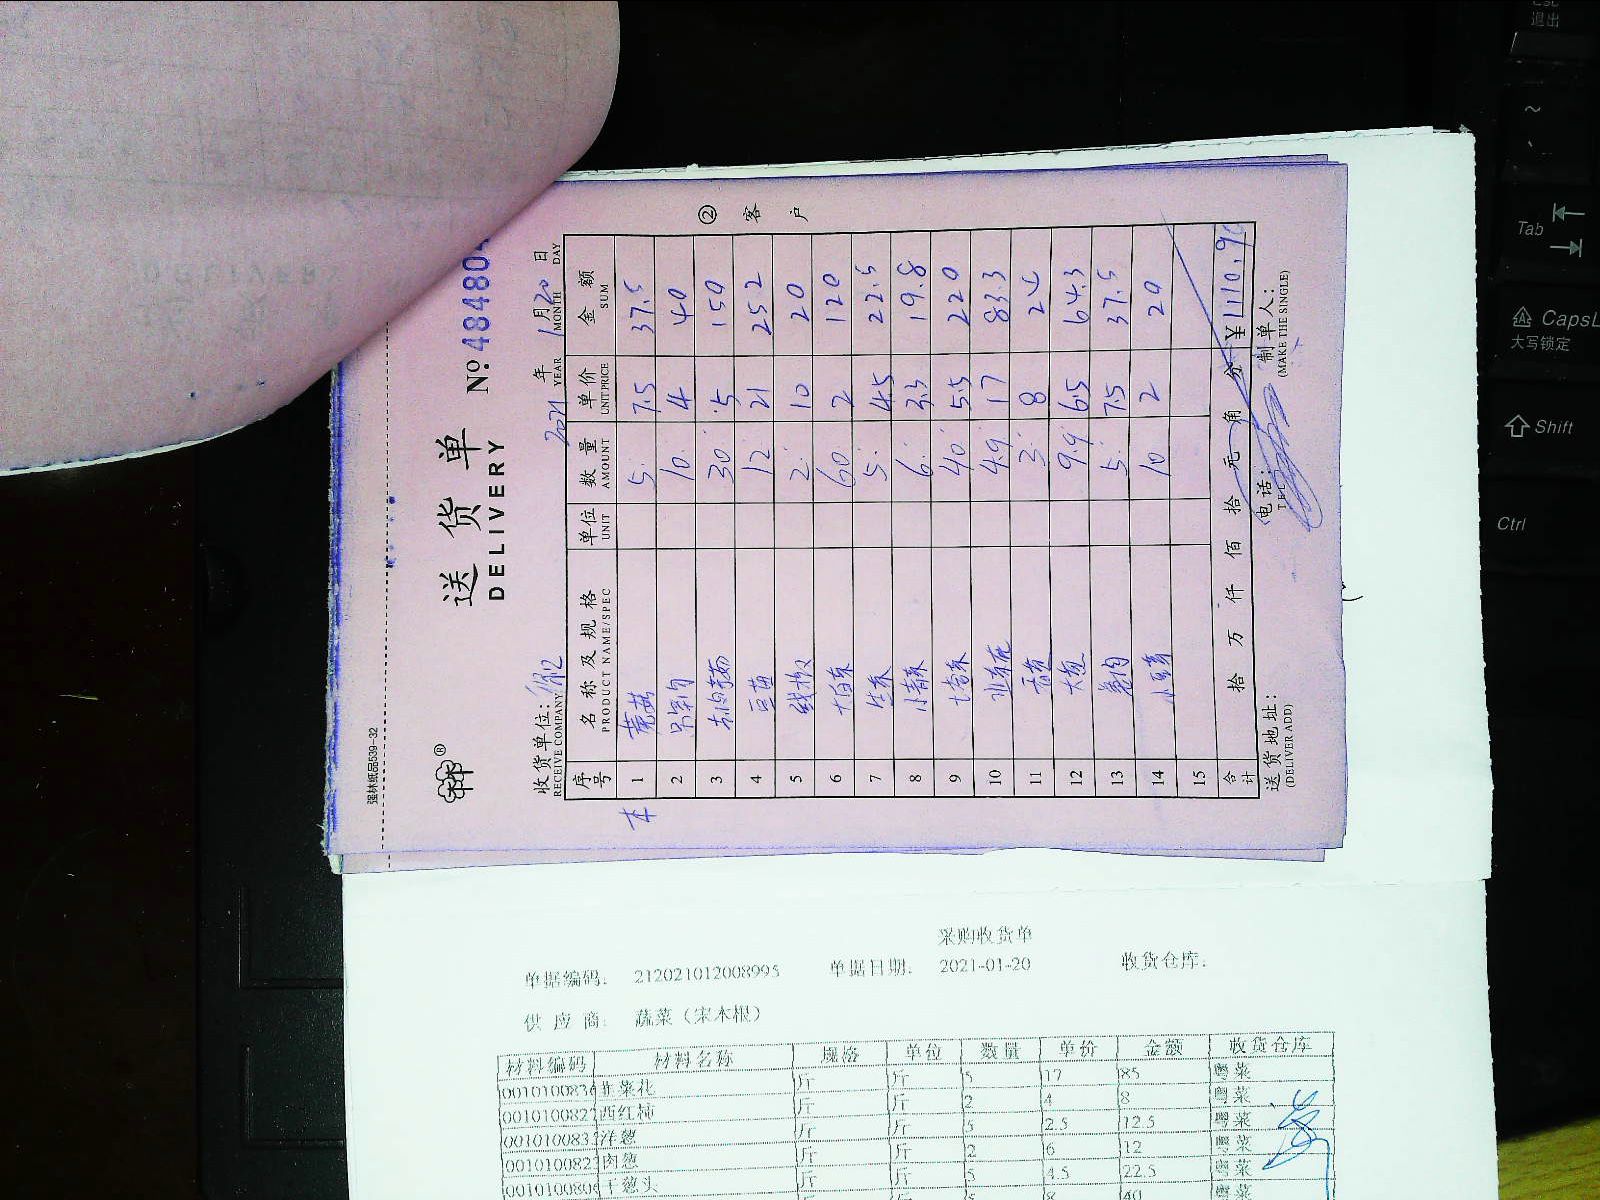 强林纸品539-32
送 货 单
DELIVERY
No. 48480
② 客 户
收货单位:
RECEIVE COMPANY
2021 年 1 月 20 日
YEAR MONTH DAY
序号 名 称 及 规 格 单位 数 量 单 价 金 额
PRODUCT NAME/SPEC UNIT AMOUNT UNIT PRICE SUM
1 5 7.5 37.5
2 10 4 40
3 30 5 150
4 豆苗 12 21 252
5 2 10 20
6 60 2 120
7 生菜 5 4.5 22.5
8 小青菜 6 3.3 19.8
9 40 5.5 220
10 韭菜花 4.9 17 83.3
11 香菜 3 8 24
12 大葱 9.9 6.5 64.3
13 5 7.5 37.5
14 10 2 20
15
合计 拾 万 仟 佰 拾 元 角 分 ¥1110.90
送货地址: 电话: 制单人:
(DELIVER ADD) TEL (MAKE THE SINGLE)
采购收货单
单据编码: 212021012008995 单据日期: 2021-01-20 收货仓库:
供 应 商: 蔬菜（宋木根）
材料编码 材料名称 规格 单位 数量 单价 金额 收货仓库
0010100836 韭菜花 斤 斤 5 17 85 粤菜
001010082 西红柿 斤 斤 2 4 8 粤菜
001010083 洋葱 斤 斤 5 2.5 12.5 粤菜
001010082 肉葱 斤 斤 2 6 12 粤菜
0010100806 干葱头 斤 斤 5 4.5 22.5 粤菜
斤 斤 5 8 40 粤菜
Esc
退出
~
Tab
CapsL
大写锁定
Shift
Ctrl